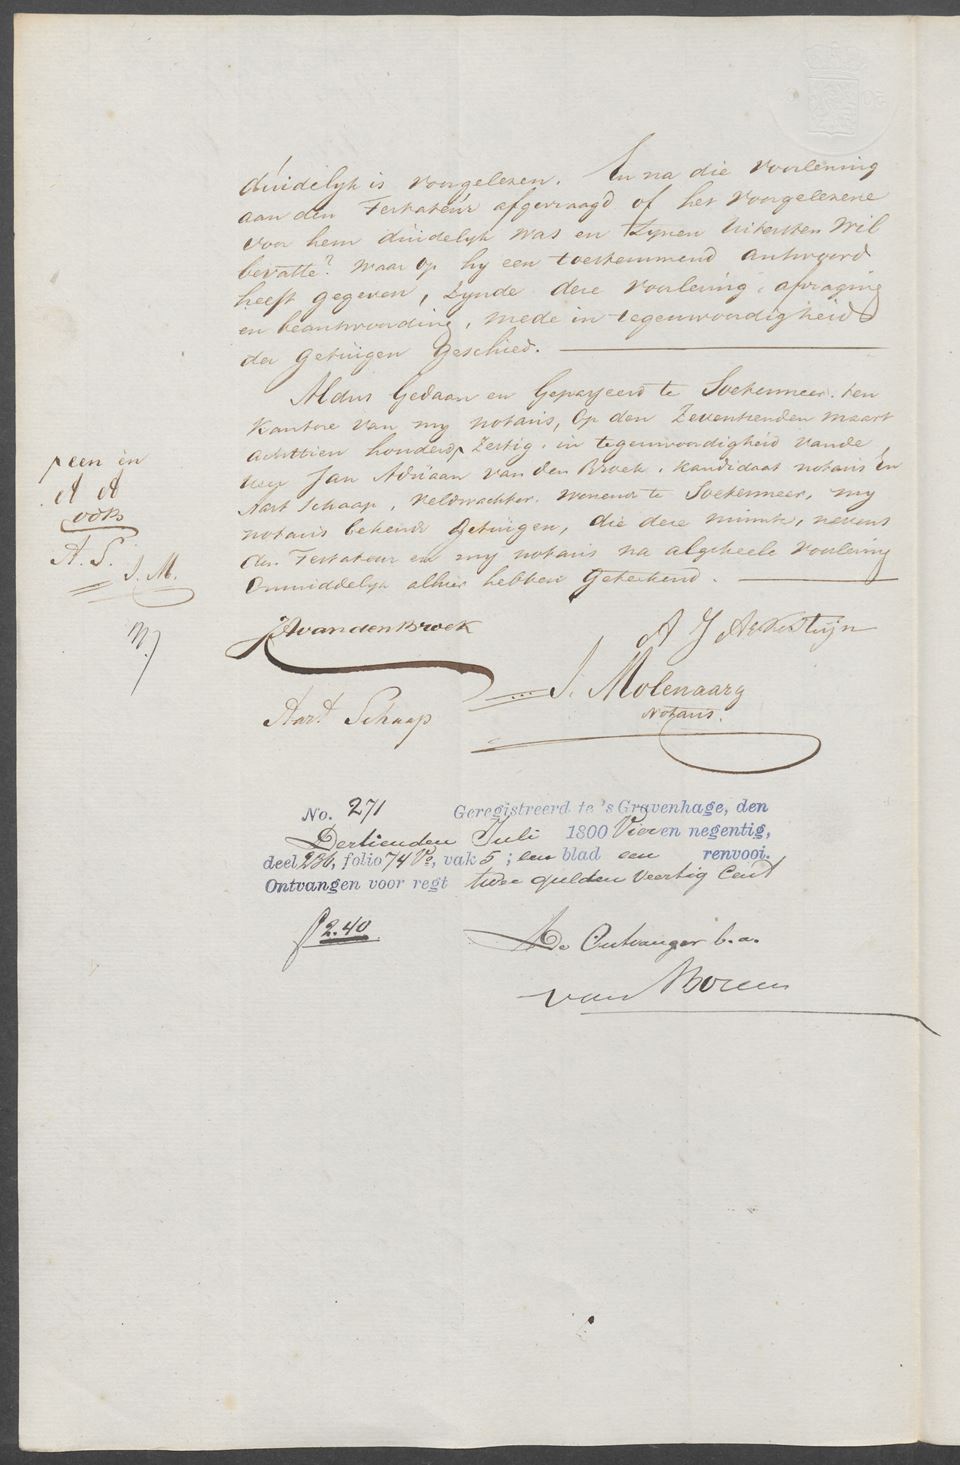 duidelyk is voorgelezen. En na die voorlezing
aan den Testateur afgevraagd of het voorgelezene
voor hem duidelyk was en Zynen Uitersten Wil
bevatte? waar op hy een toestemmend antwoord
heeft gegeven, Zynde deze voorlezing, afvraging
en beantwoording, mede in tegenwoordigheid
der getuigen geschied.
Aldus Gedaan en Gepasseerd te Soetermeer, ten
Kantore van my notaris, op den Zeventienden maart
achttien honderd Zestig, in tegenwoordigheid van de
Jan Adriaan van den Broek, kandidaat notaris En
Aart Schaap, Veldwachter, wonende te Soetermeer, my
notaris bekende getuigen, die deze minute, nevens
den Testateur en my notaris na algeheele voorlezing
Onmiddelyk alhier hebben geteekend.
een en
A A
vdB
A. S.
J. M.
JA van den Broek
A J
J. Molenaar
Notaris.
Aart Schaap
No. 271 Geregistreerd te 's Gravenhage, den
Dertienden Juli 1800 Vier en negentig,
deel 236, folio 74 Vo, vak 5; een blad een renvooi.
Ontvangen voor regt twee gulden veertig Cent
f 2.40
De Ontvanger b.a.
van